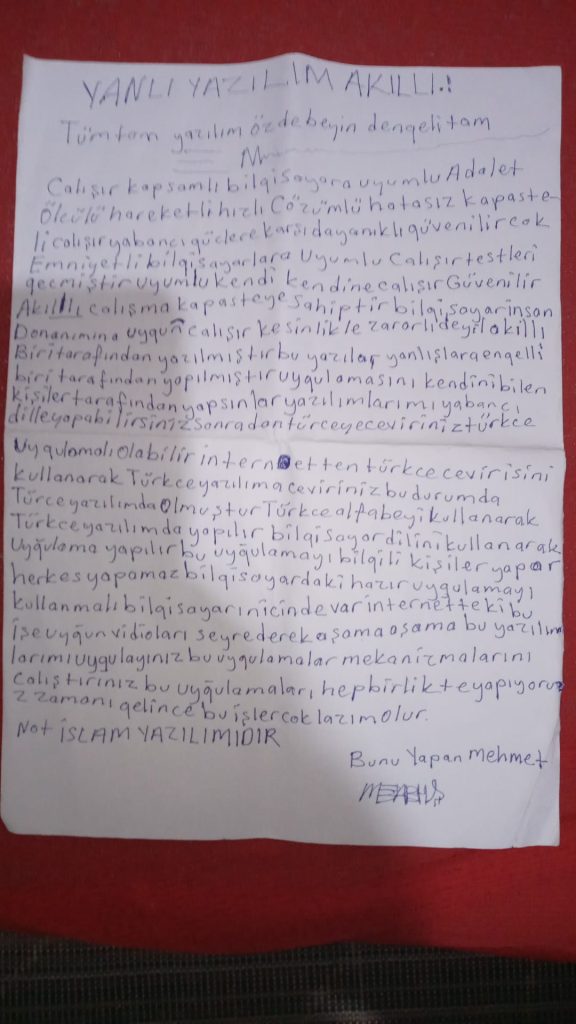 YANLI YAZILIM AKILLI.!
Tümtam yazılım özdebeyin dengeli tam
Calışır kapsamlı bilgisayara uyumlu Adalet
Ölcülü hareketli hızlı Cözümlü hatasız kapaste-
li calışır yabancı güclere karşı dayanıklı güvenilir cok
Emniyetli bilgisayarlara uyumlu Calışır testleri
gecmiştir uyumlu kendi kendine calışır Güvenilir
Akıllı calışma kapasteye sahiptir bilgisayar insan
Donanımına uygun calışır kesinlikle zararlı deyil akıllı
Biri tarafından yazılmıştır bu yazılar yanlışlara engelli
biri tarafından yapılmıştır uygulamasını kendini bilen
kişiler tarafından yapsınlar yazılımlarımı yabancı
dille yapabilirsiniz sonradan türceye ceviriniz türkce
uygulamalı olabilir internetten türkce cevirisini
kullanarak Türkce yazılıma ceviriniz bu durumda
Türce yazılımda olmuştur Türkce alfabeyi kullanarak
Türkce yazılımda yapılır bilgisayar dilini kullanarak
Uyğulama yapılır bu uyğulamayı bilgili kişiler yapar
herkes yapamaz bilgisayardaki hazır uygulamayı
kullanmalı bilgisayarın icinde var internetteki bu
işe uyğun vidioları seyrederek aşama aşama bu yazılım
larımı uygulayınız bu uygulamalar mekanizmalarını
calıştırınız bu uyğulamaları, hep birlikte yapıyoruz
z zamanı gelince bu işler cok lazım olur.
Not İSLAM YAZILIMIDIR
Bunu Yapan Mehmet